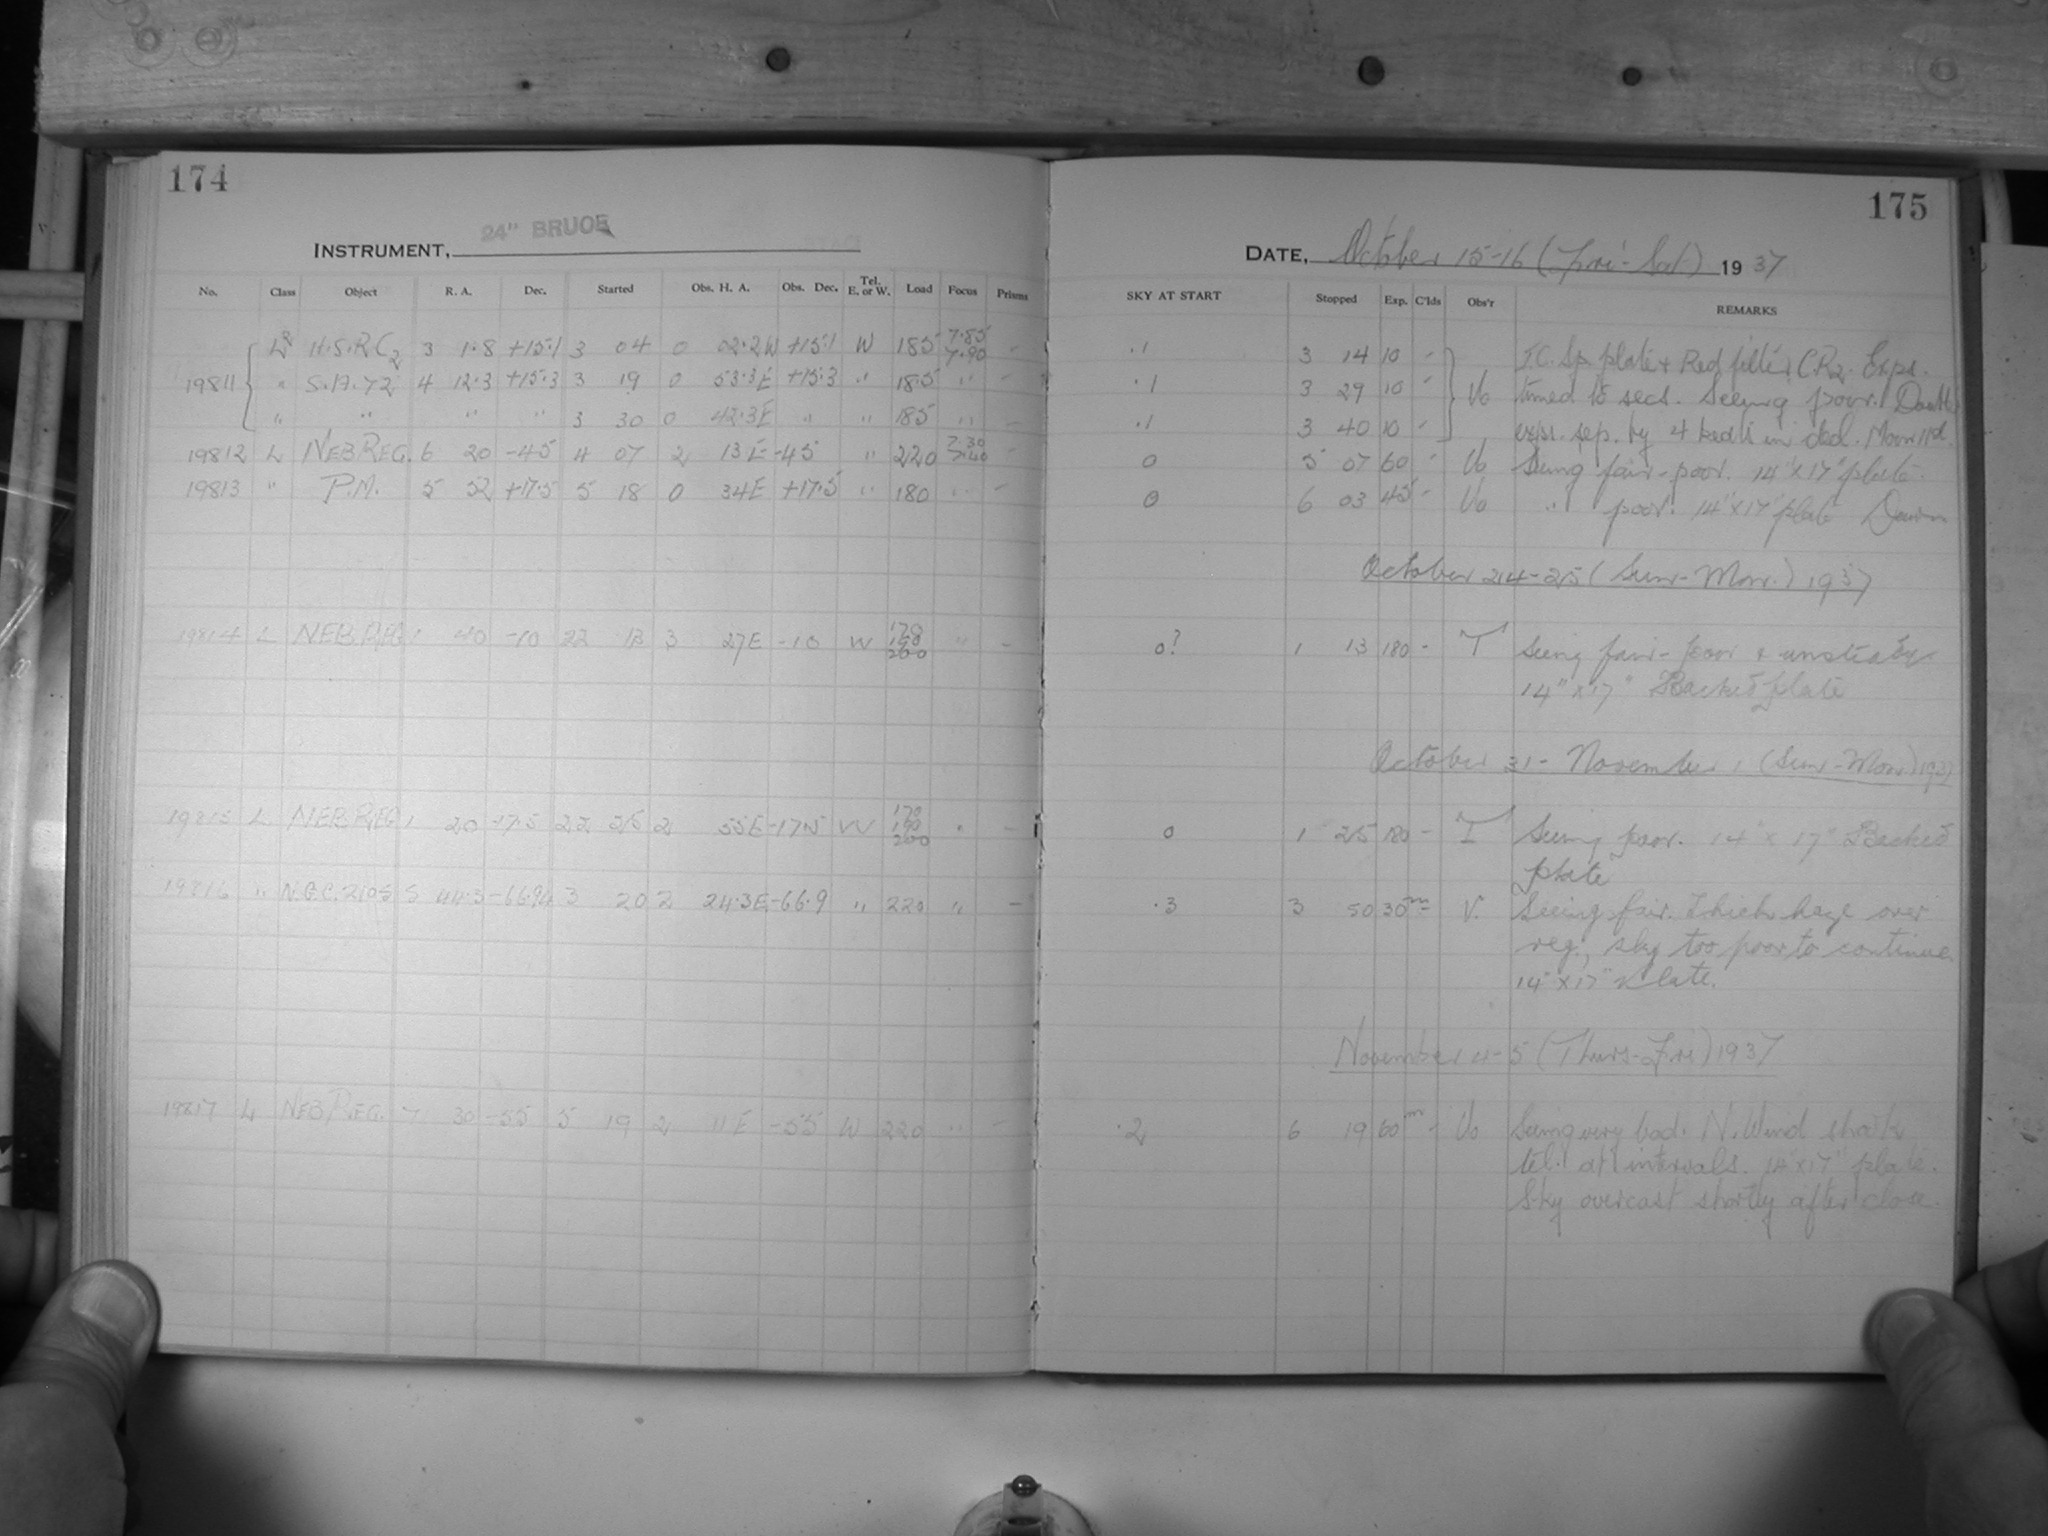 174
INSTRUMENT, 24" BRUCE
No. Class Object R. A. Dec. Started Obs. H. A. Obs. Dec. Tel. E. or W. Load Focus Prisms
H.S.R C2 3 1.8 +15.1 3 04 0 02.2W +15.1 W 185 7.85 7.90 -
19811 " S.A. 72 4 12.3 +15.3 3 19 0 53.3E +15.3 " 185 " -
" " " " 3 30 0 42.3E " " 185 " -
19812 L NEB REG. 6 20 -45 4 07 2 13E -45 " 220 -
19813 " P.M. 5 52 +17.5 5 18 0 34E +17.5 " 180 " -
19814 L NEB REG 1 40 -10 22 13 3 27E -10 W 200 " -
19815 L NEB REG 1 20 -17.5 22 25 2 55E -17.5 W 170 190 200 " -
19816 " N.G.C. 2105 5 44.3 -66.94 3 20 2 24.3E -66.9 " 220 " -
19817 L NEB REG. 7 30 -55 5 19 2 11E -55 W 220 " -
175
DATE, October 15-16 (Fri-Sat) 1937
SKY AT START Stopped Exp. C'lds Obs'r REMARKS
.1 3 14 10 - I.C. Sp. plate & Red filter CR2. Exps.
.1 3 29 10 - Vo timed to secs. Seeing poor. Double
.1 3 40 10 - exps. sep. by 4 in decl.
0 5 07 60 - Vo Seeing fair-poor. 14"x17" plate.
0 6 03 45 - Vo " poor. 14"x17" plate Dawn
October 24-25 (Sun-Mon.) 1937
0? 1 13 180 - T Seeing fair-poor & unsteady
14"x17" Backed plate
October 31 - November 1 (Sun-Mon) 1937
0 1 25 180 - T Seeing poor. 14"x17" Backed
plate
.3 3 50 30m - V. Seeing fair. Thick haze over
reg., sky too poor to continue
14"x17" plate.
November 4-5 (Thurs-Fri) 1937
.2 6 19 60m - Vo Seeing very bad. N. Wind shook
tel. at intervals. 14"x17" plate.
Sky overcast shortly after close.